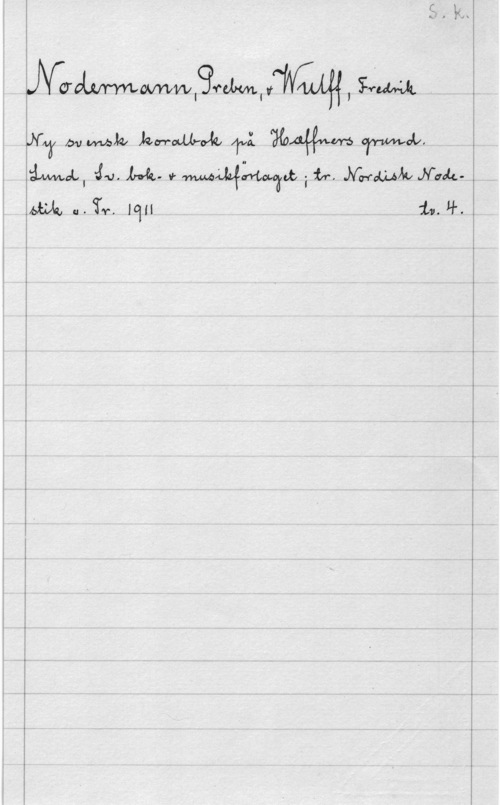 S. k.
Nodermann, Preben, & Wulff, Fredrik
Ny svensk koralbok på Hæffners grund.
Lund, Sv. bok- & musikförlaget; tr. Nordisk Node-
stik o. Tr. 1911 tv. 4.